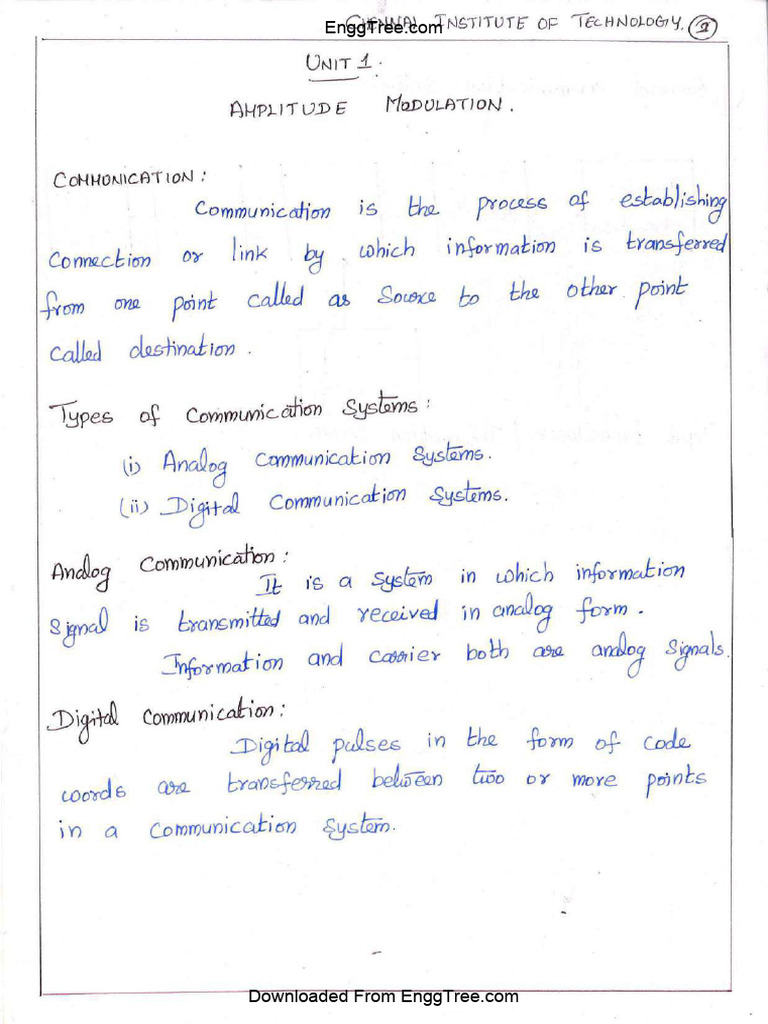 EnggTree.com
CHENNAI INSTITUTE OF TECHNOLOGY. 1
UNIT 1.
AMPLITUDE MODULATION.
COMMUNICATION:
Communication is the process of establishing
Connection or link by which information is transferred
from one point called as Source to the other point
called destination.
Types of Communication Systems:
(i) Analog Communication Systems.
(ii) Digital Communication Systems.
Analog Communication:
It is a System in which information
Signal is transmitted and received in analog form.
Information and carrier both are analog Signals.
Digital Communication:
Digital pulses in the form of code
words are transferred between two or more points
in a Communication System.
Downloaded From EnggTree.com